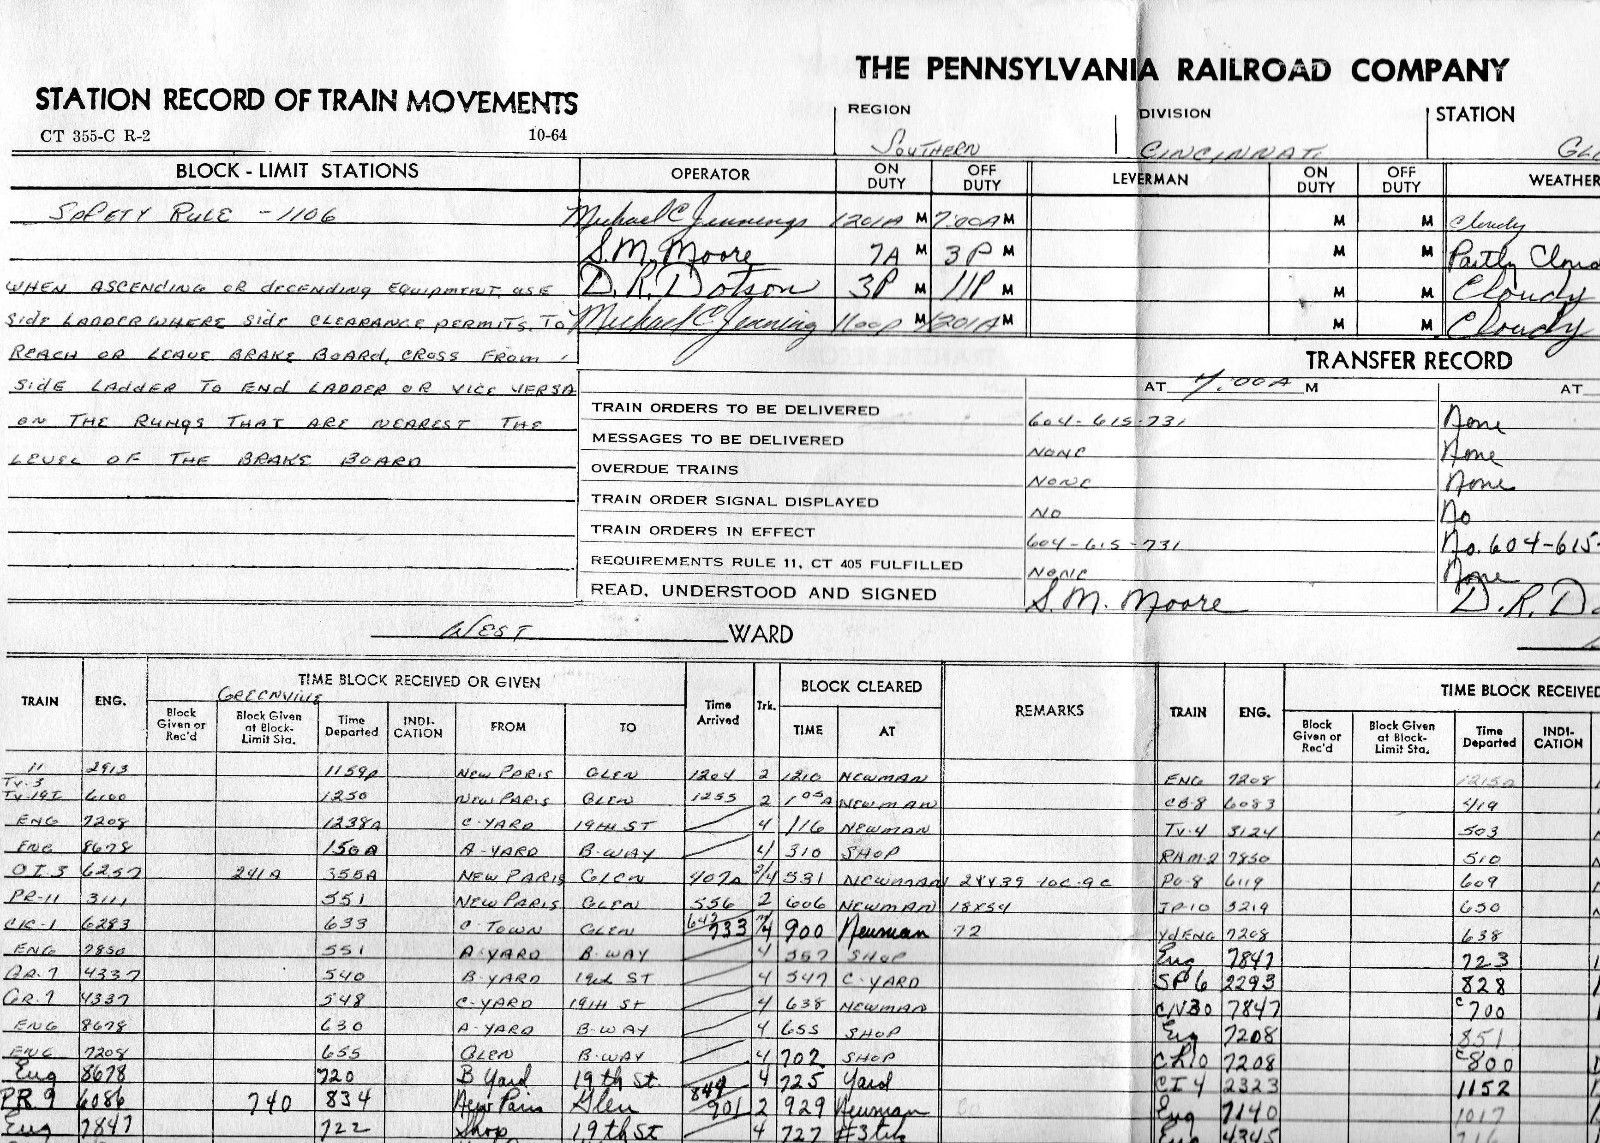 THE PENNSYLVANIA RAILROAD COMPANY
STATION RECORD OF TRAIN MOVEMENTS
CT 355-C R-2 10-64
REGION SOUTHERN DIVISION CINCINNATI STATION
BLOCK - LIMIT STATIONS OPERATOR ON DUTY OFF DUTY LEVERMAN ON DUTY OFF DUTY WEATHER
SAFETY RULE - 1106 Michael C Jennings 1201A M 7:00A M M M Cloudy
S. M. Moore 7A M 3P M M M Partly
WHEN ASCENDING OR DECENDING EQUIPMENT, USE D. R. Dotson 3P M 11P M M M Cloudy
SIDE LADDER WHERE SIDE CLEARANCE PERMITS. TO Michael C Jenning 1100P M 1201A M M M Cloudy
REACH OR LEAVE BRAKE BOARD, CROSS FROM
SIDE LADDER TO END LADDER OR VICE VERSA
ON THE RUNGS THAT ARE NEAREST THE
LEVEL OF THE BRAKE BOARD
TRANSFER RECORD
AT 7:00A M AT
TRAIN ORDERS TO BE DELIVERED 604-615-731 None
MESSAGES TO BE DELIVERED NONE None
OVERDUE TRAINS NONE None
TRAIN ORDER SIGNAL DISPLAYED NO No
TRAIN ORDERS IN EFFECT 604-615-731 No. 604-615-
REQUIREMENTS RULE 11, CT 405 FULFILLED NONE None
READ, UNDERSTOOD AND SIGNED S. M. Moore D. R.
WEST WARD
TRAIN ENG. TIME BLOCK RECEIVED OR GIVEN Time Arrived Trk. BLOCK CLEARED REMARKS TRAIN ENG. TIME BLOCK RECEIVED
GREENVILLE
Block Given or Rec'd Block Given at Block-Limit Sta. Time Departed INDI-CATION FROM TO TIME AT Block Given or Rec'd Block Given at Block-Limit Sta. Time Departed INDI-CATION
11 2913 1159P NEW PARIS GLEN 1204 2 1210 NEWMAN ENG 7208 1215A
TV-3
TV-19I 6100 1250 NEW PARIS GLEN 1255 2 105A NEWMAN CB-8 6083 419
ENG 7208 1238A C-YARD 19TH ST 4 116 NEWMAN TV-4 3124 503
ENG 8678 150A A-YARD B-WAY 4 310 SHOP 7850 510
OI 3 6257 241A 355A NEW PARIS GLEN 407A 4 531 NEWMAN PO-8 6119 609
PR-11 3111 551 NEW PARIS GLEN 556 2 606 NEWMAN 18X54 JP-10 3219 630
6283 633 C-TOWN GLEN 642 733 4 900 Newman 72 Yd ENG 7208 638
ENG 7850 551 A-YARD B-WAY 4 557 SHOP Eng 7847 723
GR-7 4337 540 B-YARD ST 4 547 C-YARD SP 6 2293 828
GR-7 4337 548 C-YARD 19TH ST 4 638 NEWMAN 7847 700
ENG 8678 630 A-YARD B-WAY 4 655 SHOP Eng 7208 851
ENG 7208 655 GLEN B-WAY 4 702 SHOP 7208 800
Eng 8678 720 B Yard 19th St. 4 725 Yard CI 4 2323 1152
PR 9 6086 740 834 New Paris Glen 901 2 929 Newman Eng 7140 1017
Eng 7847 722 Shop 19th St 4 727 Eng 4345